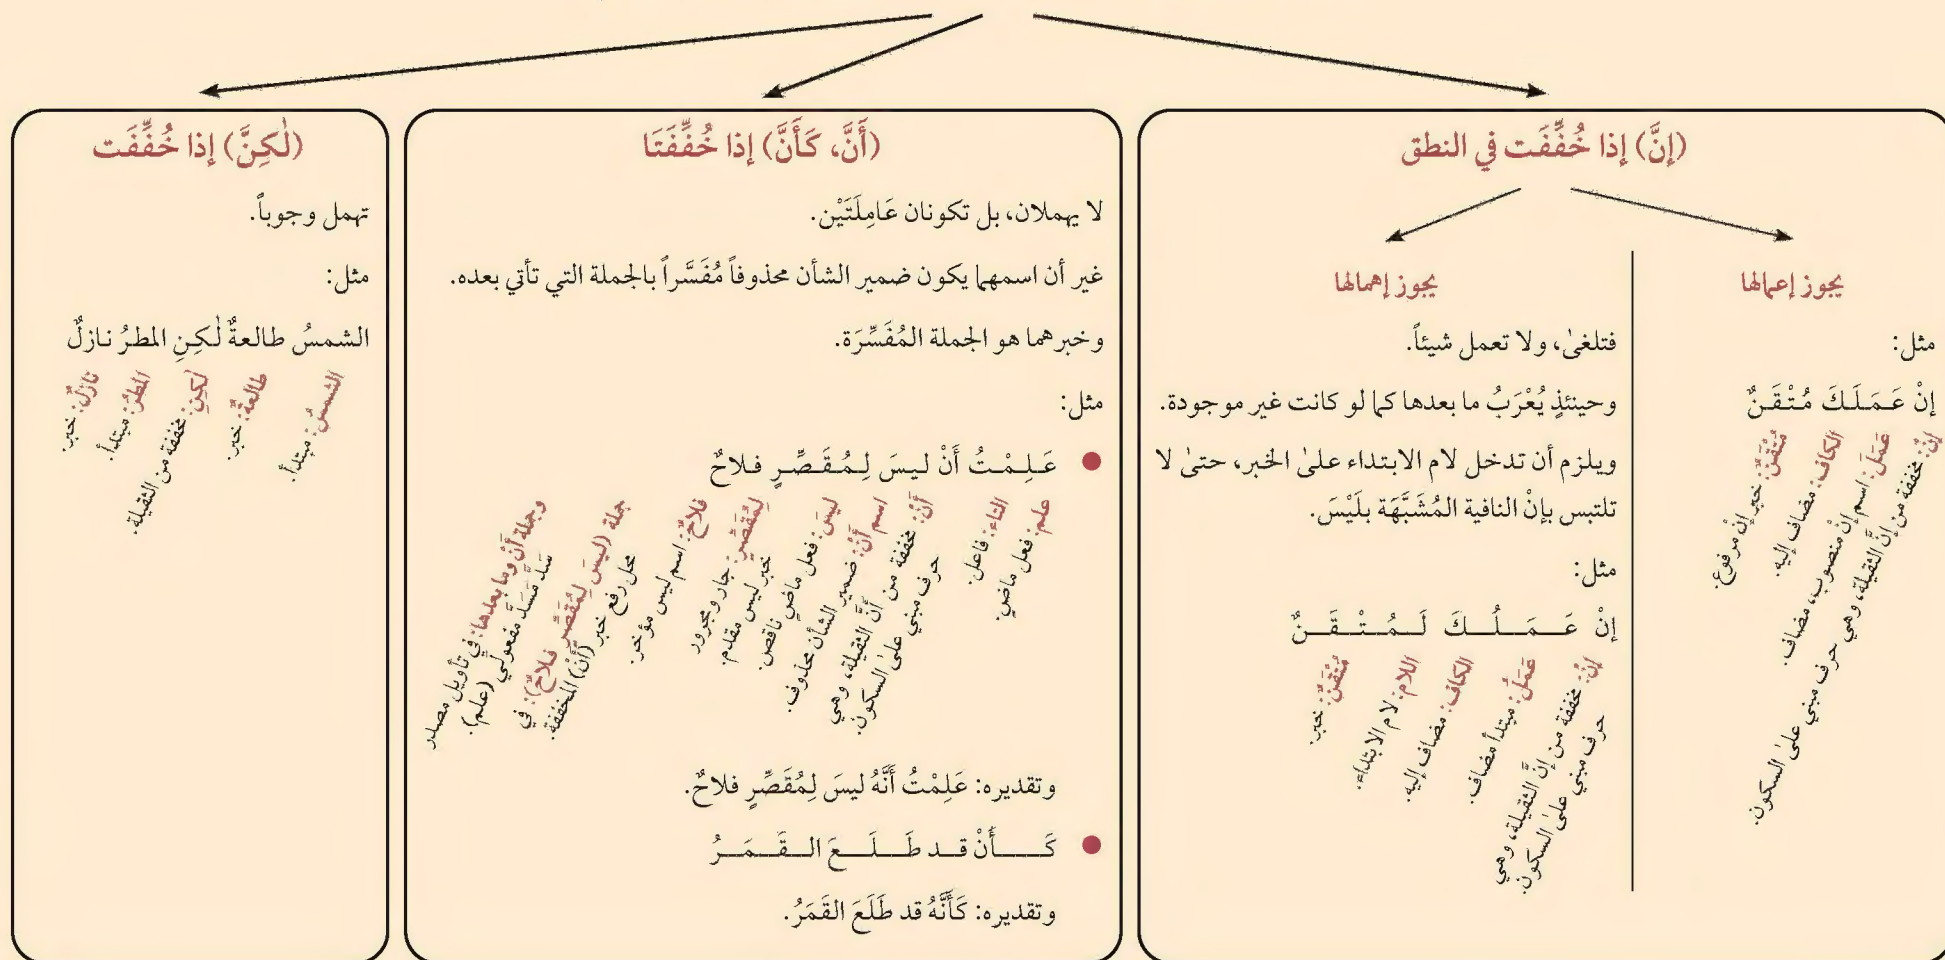 (إنَّ) إذا خُفِّفَت في النطق
يجوز إعمالها
مثل:
إنْ عَـمَـلَـكَ مُـتْـقَـنٌ
إنْ: مخففة من إنَّ الثقيلة، وهي حرف مبني علىٰ السكون.
عَمَلَ: اسم إنْ منصوب، مضاف.
الكاف: مضاف إليه.
مُتْقَنٌ: خبر إنْ مرفوع.
يجوز إهمالها
فتلغىٰ، ولا تعمل شيئاً.
وحينئذٍ يُعْرَبُ ما بعدها كما لو كانت غير موجودة.
ويلزم أن تدخل لام الابتداء علىٰ الخبر، حتىٰ لا
تلتبس بإنْ النافية المُشَبَّهَة بلَيْسَ.
مثل:
إنْ عَـــمَـــلُـــكَ لَــمُــتْــقَــنٌ
إنْ: مخففة من إنَّ الثقيلة، وهي
حرف مبني علىٰ السكون.
عَمَلُ: مبتدأ مضاف.
الكاف: مضاف إليه.
اللام: لام الابتداء.
مُتْقَنٌ: خبر.
(أَنَّ، كَأَنَّ) إذا خُفِّفَتَا
لا يهملان، بل تكونان عَامِلَتَيْن.
غير أن اسمهما يكون ضمير الشأن محذوفاً مُفَسَّراً بالجملة التي تأتي بعده.
وخبرهما هو الجملة المُفَسِّرَة.
مثل:
● عَـلِـمْـتُ أَنْ لـيـسَ لِـمُـقَـصِّـرٍ فـلاحٌ
علم: فعل ماضٍ.
التاء: فاعل.
أَنْ: مخففة من أَنَّ الثقيلة، وهي
حرف مبني علىٰ السكون.
اسم أَنْ: ضمير الشأن محذوف.
ليسَ: فعل ماضٍ ناقص.
لِمُقَصِّرٍ: جار ومجرور
خبر ليس مقدم.
فلاحٌ: اسم ليس مؤخر.
جملة (ليسَ لِمُقَصِّرٍ فلاحٌ): في
محل رفع خبر (أَنْ) المخففة.
وجملة أَنْ وما بعدها: في تأويل مصدر
سَدَّ مَسَدَّ مفعولي (علم).
وتقديره: عَلِمْتُ أَنَّهُ ليسَ لِمُقَصِّرٍ فلاحٌ.
● كَـــــأَنْ قــد طَـــلَـــعَ الــقَـــمَـــرُ
وتقديره: كَأَنَّهُ قد طَلَعَ القَمَرُ.
(لٰكِنَّ) إذا خُفِّفَت
تهمل وجوباً.
مثل:
الشمسُ طالعةٌ لٰكِنِ المطرُ نازلٌ
الشمسُ: مبتدأ.
طالعةٌ: خبر.
لٰكِنِ: مخففة من الثقيلة.
المطرُ: مبتدأ.
نازلٌ: خبر.